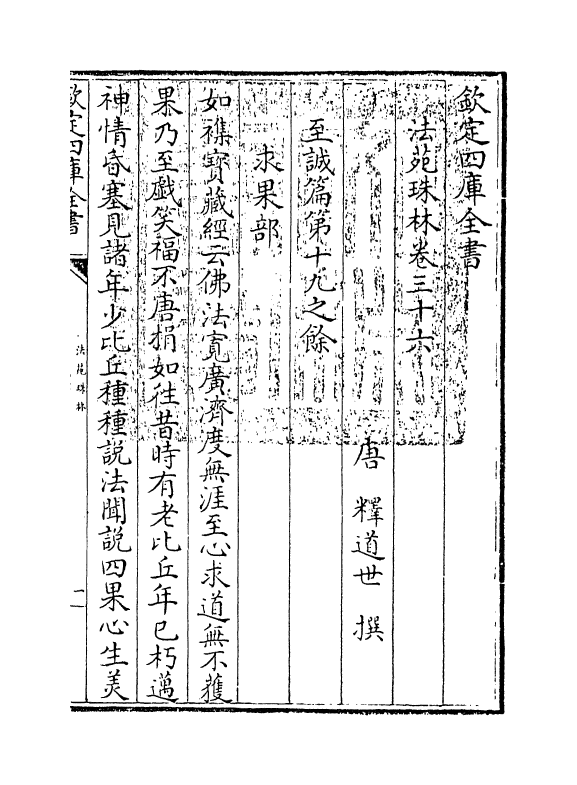 欽定四庫全書
法苑珠林卷三十六
唐 釋道世 撰
至誠篇第十九之餘
求果部
如襍寶藏經云佛法寬廣濟度無涯至心求道無不獲
果乃至戲笑福不唐捐如往昔時有老比丘年已朽邁
神情昏塞見諸年少比丘種種說法聞說四果心生羙
欽定四庫全書
法苑珠林